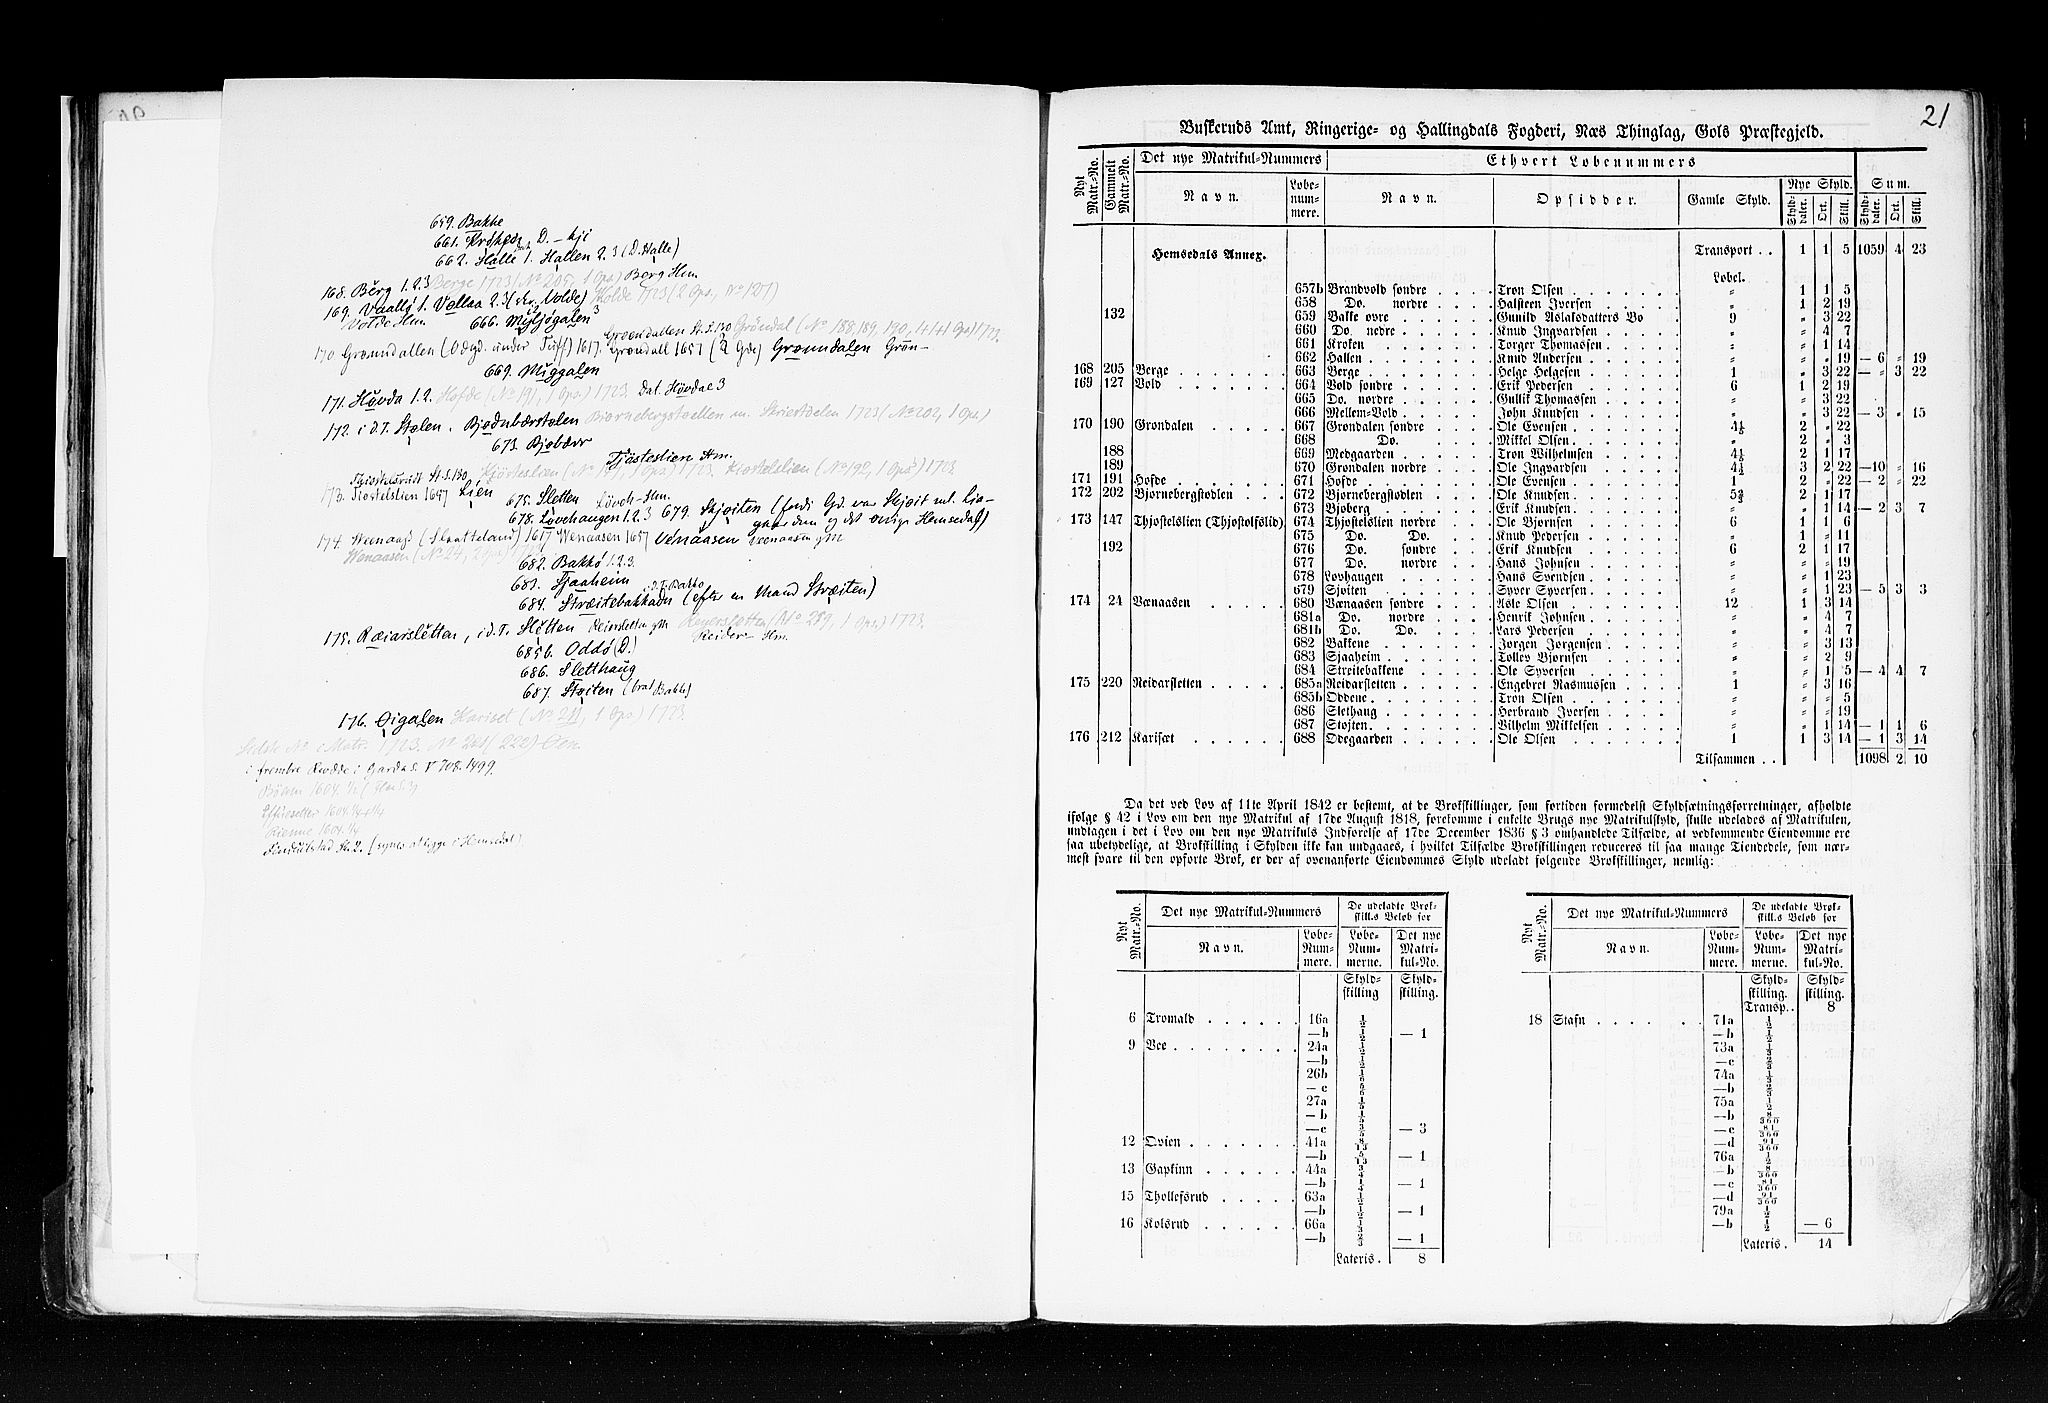 659. Bakke
661. Krøken D. – kji
662. Halle 1. Hallen 2.3 (D. Halle)
168. Berg 1.2.3 Berge 1723 (No 205, 1 Ops.) Berg Hm.
169. Vaallø 1. Vollaa 2.3 Volde) Holde 1723 (2 Ops., No 127)
Volde Hm. 666. Myljøgalen 3
Groendallen St. S. 130 Gröndal (No 188, 189, 190, 1 Ops) 1723.
170 Grøndallen (Ødegd. under Tuff) 1617. Grøndall 1657 (2 Gde) Grønndalen Grøn–
669. Miggalen
171. Høvda 1.2. Hofde (No 191, 1 Ops.) 1723. Dat. Høvdae 3
172. i d.T. Stølen. Bjødnbærstølen Biørnebergstoellen m. 1723 (No 202, 1 Ops.)
673. Bjøbærr
Tjøsteslien Hm.
St. S. 130 1723. (No 192, 1 Ops) 1723
173. Tiostelslien 1647 Lien 675. Sletten Løveh– Hm.
678. Løvehaugen 1.2.3 679. Skjøiten (fordi Gd. var Skjøit ml. Lia–
gaardene og det øvrige Hemsedal)
174. Weenaas (Slaatteland) 1617 Wenaasen 1657 Venaasen Veenaasen gM
Wenaasen (No 24, 2 Ops)
682. Bakkø 1.2.3.
683. Sjaaheim
i d.T. Bakko
684. Stræitebakkadn (efter en Mand Stræiten)
175. Ræiarsletten, i d.T. Sletten Reiersletten gM Reyersletten (No 219, 1 Ops.) 1723.
Reider– Hm.
685b. Oddø (D.)
686. Sletthaug
687. Støiten (brat Bakke)
176. Øigalen Kariset (No 211, 1 Ops) 1723.
Sidste No i Matr. 1723. No 221 (222) Øen.
i frembre Rudde i Gardas. V 708. 1499.
1604. ½
1604. ¼
1604. ¼
St. 2. (synes at ligge i Hemsedal)
21
Buskeruds Amt, Ringerige- og Hallingdals Fogderi, Næs Thinglag, Gols Præstegjeld.
Nyt Matr.-No. Gammelt Matr.-No. Det nye Matrikul-Nummers Ethvert Løbenummers
Navn. Løbe-nummere. Navn. Opsidder. Gamle Skyld. Nye Skyld. Sum.
Skyld-daler. Ort. Skill. Skyld-daler. Ort. Skill.
Hemsedals Annex. Transport . . 1 1 5 1059 4 23
Løbel.
657b Brandvold søndre Tron Olsen " 1 1 5
658 Do. nordre Halsteen Iversen " 1 2 19
132 659 Bakke øvre Gunild Aslaksdatters Bo 9 " 3 22
660 Do. nedre Knud Ingvardsen " " 4 7
661 Kroken Torger Thomassen " " 1 14
662 Hallen Knud Andersen " " " 19 — 6 " 19
168 205 Berge 663 Berge Helge Helgesen 1 " 3 22 — " 3 22
169 127 Vold 664 Vold søndre Erik Pedersen 6 1 2 19
665 Do. nordre Gullik Thomassen " " 3 22
666 Mellem-Vold John Knudsen " " 3 22 — 3 " 15
170 190 Grøndalen 667 Grøndalen søndre Ole Evensen 4½ 2 " 22
668 Do. Mikkel Olsen " 2 " 3
188 669 Medgaarden Tron Wilhelmsen 4½ 2 1 17
189 670 Grøndalen nordre Ole Ingvardsen 4½ 3 2 22 —10 " 16
171 191 Høfde 671 Høfde Ole Evensen 1 2 " 22 — 2 " 22
172 202 Bjørnebergstødlen 672 Bjørnebergstødlen Ole Knudsen 2 1 17
673 Bjøberg Erik Knudsen " " 1 14 — 2 3 7
173 147 Thjøstelslien (Thjostolfslid) 674 Thjøstelslien nordre Ole Bjørnsen 6 1 1 6
675 Do. Do. Knud Pedersen " 1 " 11
192 676 Do. søndre Erik Knudsen 6 2 1 17
677 Do. nordre Hans Johnsen " " " 19
678 Løvhaugen Hans Svendsen " " 1 23
679 Sjøiten Syver Syversen " " 1 23 — 5 3 3
174 24 Vænaasen 680 Vænaasen søndre Asle Olsen 12 1 3 14
681a Do. nordre Henrik Johnsen " " 4 7
681b Do. Do. Lars Pedersen " " 4 7
682 Bakkene Jørgen Jørgensen " " 3 13
683 Sjaaheim Tollev Bjørnsen " " 2 9
684 Streitebakkene Ole Syversen " " 1 5 — 4 4 7
175 220 Reidarsletten 685a Reidarsletten Engebret Rasmussen 1 " 3 16
685b Oddene Tron Olsen " " " 5
686 Slethaug Herbrand Iversen " " " 19
687 Støjten Vilhelm Mikkelsen " " 1 14 — 1 1 6
176 212 Karisæt 688 Ødegaarden Ole Olsen 1 1 3 14 — 1 3 14
Tilsammen . . 1098 2 10
Da det ved Lov af 11te April 1842 er bestemt, at de Brøkskillinger, som fortiden formedelst Skyldsætningsforretninger, afholdte
ifølge § 42 i Lov om den nye Matrikul af 17de August 1818, forekomme i enkelte Brugs nye Matrikulskyld, skulle udelades af Matrikulen,
undtagen i det i Lov om den nye Matrikuls Indførelse af 17de December 1836 § 3 omhandlede Tilfælde, at vedkommende Eiendomme ere
saa ubetydelige, at Brøkskilling i Skylden ikke kan undgaaes, i hvilket Tilfælde Brøkskillingen reduceres til saa mange Tiendedele, som nær-
mest svare til den opførte Brøk, er der af ovenanførte Eiendommes Skyld udeladt følgende Brøkskillinger, nemlig:
Nyt Matr.-No. Det nye Matrikul-Nummers De udeladte Brøk-skill.s Beløb for
Navn. Løbe-Num-mere. Løbe-Num-merne. Det nye Matri-kul-No.
Skyld-skilling Skyld-skilling.
6 Tromald 16a ½
—b ½ — 1
9 Vee 24a ½
—b ½
26b ⅙
—c ⅚
27a ⅕
—b ⅕
—c ⅗ — 3
12 Ovien 41a 8/13
—b 5/13 — 1
13 Gapkinn 44a ¾
—b ¼ — 1
15 Thollefsrud 63a ½
—b ½ — 1
16 Kolsrud 66a ⅓
—b ⅔ — 1
Lateris. 8
Nyt Matr.-No. Det nye Matrikul-Nummers De udeladte Brøk-skill.s Beløb for
Navn. Løbe-Num-mere. Løbe-Num-merne. Det nye Matri-kul-No.
Skyld-skilling. Skyld-skilling.
Transp.. 8
18 Stafn 71a ½
—b ½
73a ⅓
—c ⅔
74a ⅓
—b ⅔
75a ½
—b 8/360
—c 81/360
—d 91/360
76a ½
—b 8/360
—c 81/360
—d 91/360
79a ½
—b ½ — 6
Lateris. 14